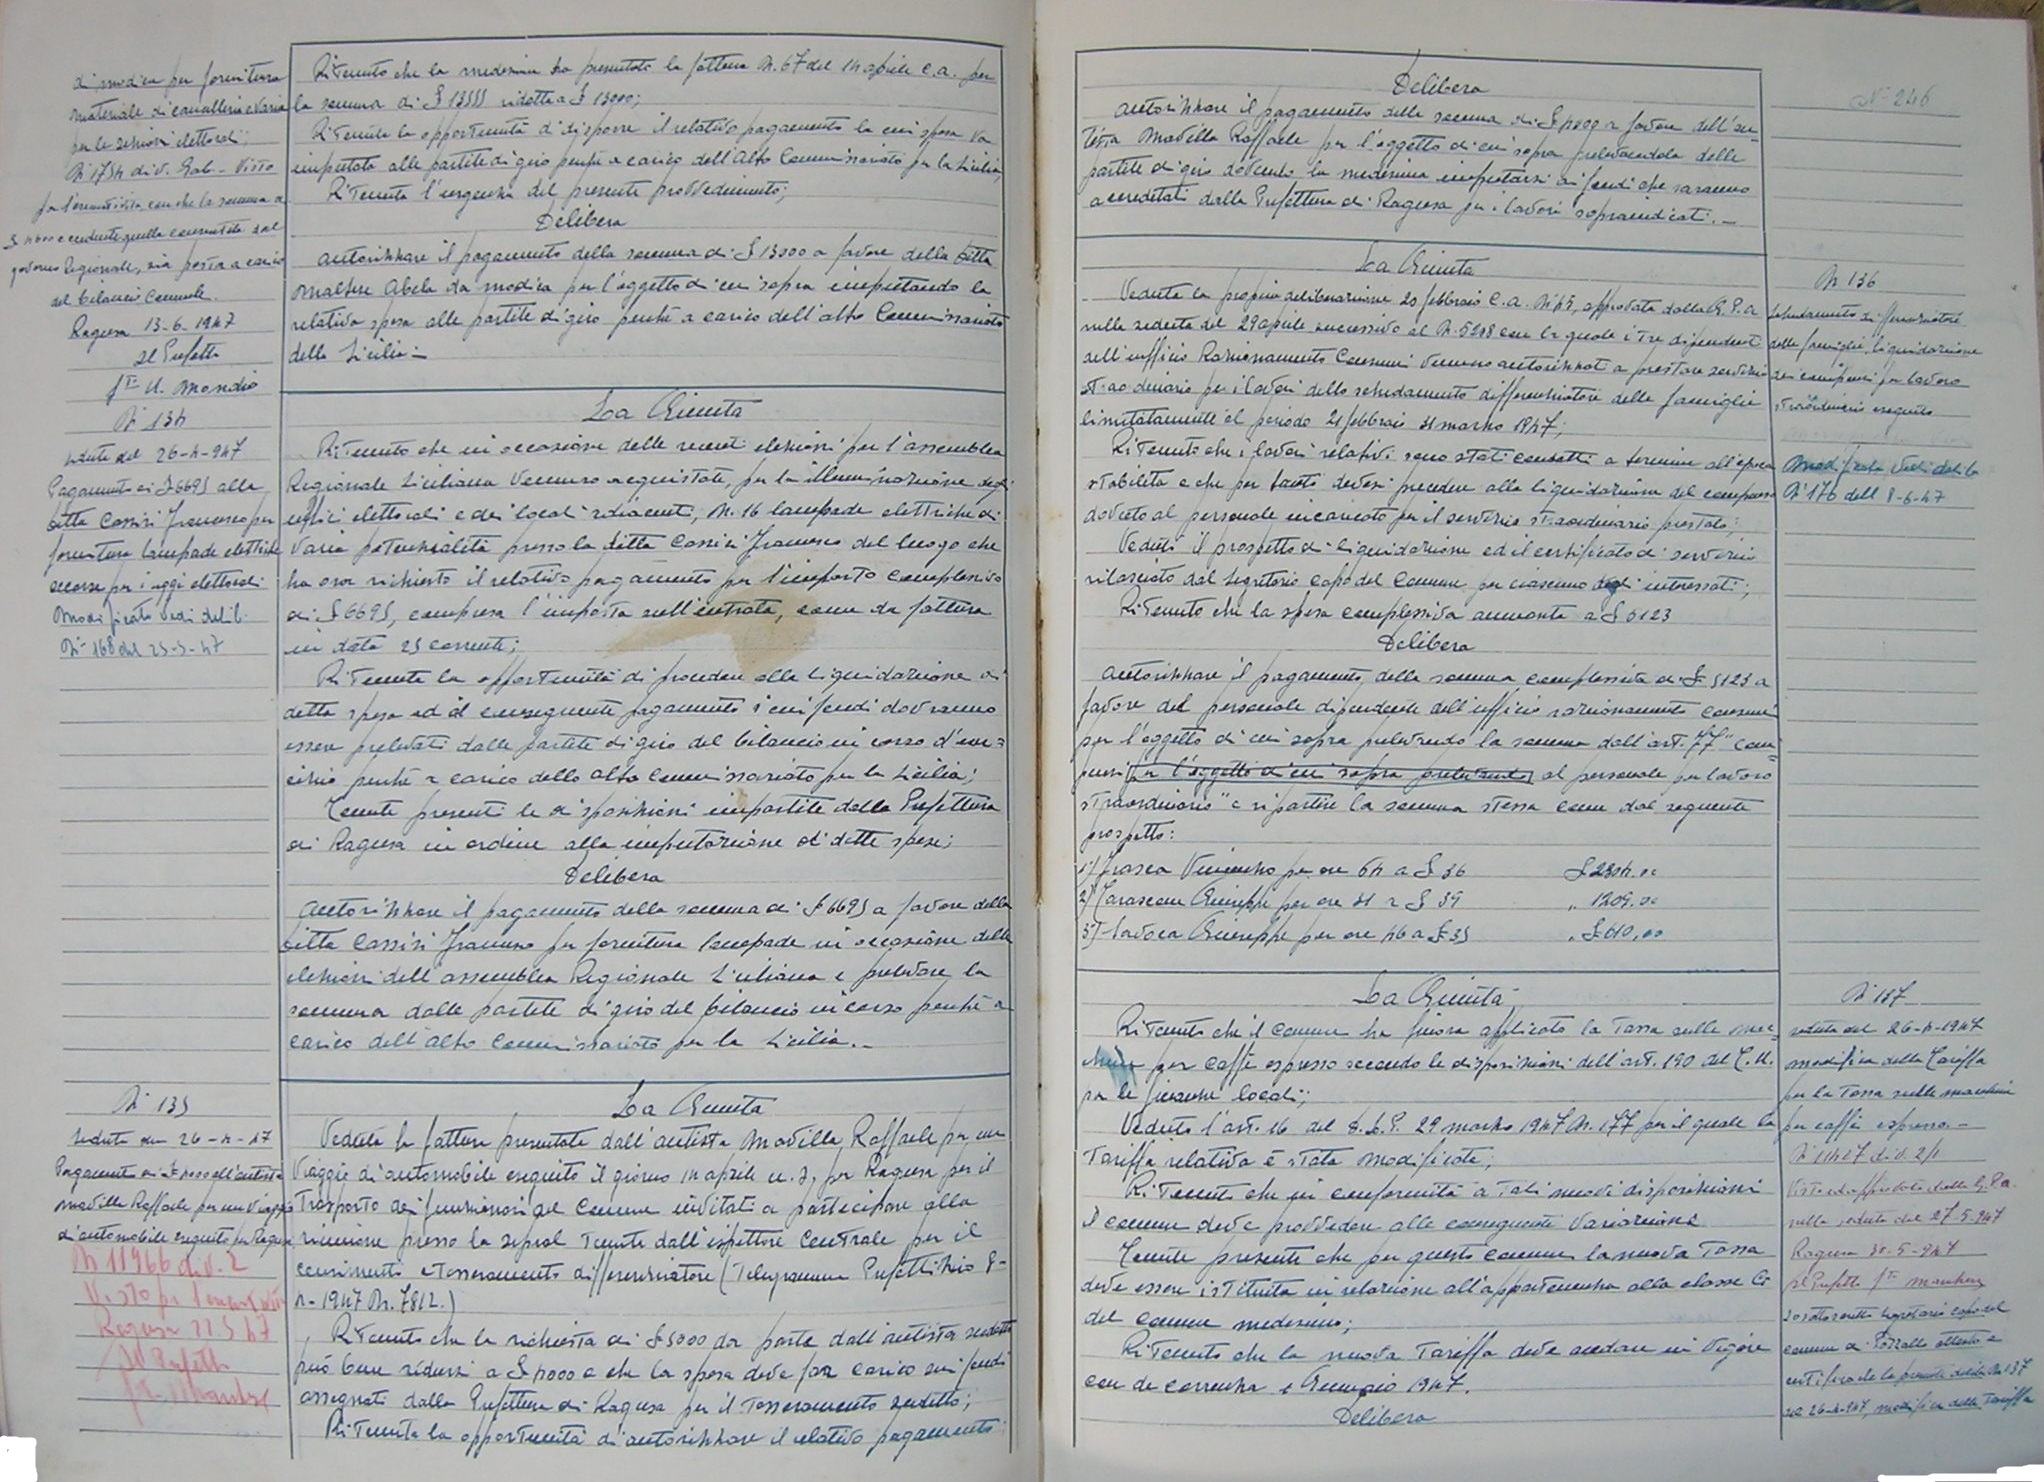 di Modica per fornitura
materiale di cancelleria e varia
per le sezioni elettorali;
N° 1754 div. Gab. - Visto
per l'esecutività con che la somma di
governo Regionale, sia posta a carico
del bilancio Comunale.
Ragusa 13-6-1947
Il Prefetto
fto U. Mondio
N° 134
seduta del 26-4-947
Pagamento di £ 6695 alla
Ditta Cassisi Francesco per
fornitura lampade elettriche
occorse per i seggi elettorali
Modificato vedi delib.
N° 168 del 23-5-47
N° 135
Seduta del 26-4-47
Pagamento di £ 4000 all'autista
Modilla Raffaele per un viaggio
d'automobile eseguito per Ragusa
N 11966 div. 2
Visto per l'esecutività
Ragusa 21 5 47
Il Prefetto
Ritenuto che la medesima ha presentato la fattura N. 67 del 14 aprile c.a. per
la somma di £ 13555 ridotta a £ 13000;
Ritenuta la opportunità di disporre il relativo pagamento la cui spesa va
imputata alle partite di giro perché a carico dell'Alto Commissariato per la Sicilia;
Ritenuta l'urgenza del presente provvedimento;
Delibera
autorizzare il pagamento della somma di £ 13000 a favore della Ditta
Maltese Abela da Modica per l'oggetto di cui sopra imputando la
relativa spesa alle partite di giro perché a carico dell'alto Commissariato
della Sicilia.-
La Giunta
Ritenuto che in occasione delle recenti elezioni per l'assemblea
Regionale Siciliana vennero acquistate, per la illuminazione degli
uffici elettorali e dei locali adiacenti, N. 16 lampade elettriche di
varia potenzialità presso la ditta Cassisi Francesco del luogo che
ha ora richiesto il relativo pagamento per l'importo complessivo
di £ 6695, compresa l'imposta sull'entrata, come da fattura
in data 23 corrente;
Ritenuta la opportunità di procedere alla liquidazione di
detta spesa ed al conseguente pagamento i cui fondi dovranno
essere prelevati dalle partite di giro del bilancio in corso d'eser=
cizio perché a carico dello alto Commissariato per la Sicilia;
Tenute presenti le disposizioni impartite dalla Prefettura
di Ragusa in ordine alla imputazione di dette spese;
Delibera
autorizzare il pagamento della somma di £ 6695 a favore della
Ditta Cassisi Francesco per fornitura lampade in occasione delle
elezioni dell'assemblea Regionale Siciliana e prelevare la
somma dalle partite di giro del bilancio in corso perché a
carico dell'Alto Commissariato per la Sicilia.-
La Giunta
Veduta la fattura presentata dall'autista Modilla Raffaele per un
viaggio di automobile eseguito il giorno 14 aprile u.s. per Ragusa per il
trasporto dei funzionari del Comune invitati a partecipare alla
riunione presso la Sepral tenuta dall'ispettore Centrale per il
censimento e tesseramento differenziatore (Telegramma Prefettizio 8-
4-1947 N. 7812.)
Ritenuto che la richiesta di £ 5000 da parte dell'autista suddetto
può bene ridursi a £ 4000 e che la spesa deve far carico sui fondi
assegnati dalla Prefettura di Ragusa per il tesseramento suddetto;
Ritenuta la opportunità di autorizzare il relativo pagamento
Delibera
autorizzare il pagamento della somma di £ 4000 a favore dell'au-
tista Modilla Raffaele per l'oggetto di cui sopra prelevandola dalle
partite di giro dovendo la medesima imputarsi ai fondi che saranno
accreditati dalla Prefettura di Ragusa per i lavori sopraindicati.-
La Giunta
Veduta la propria deliberazione 20 febbraio c.a. N° 45, approvata dalla G.P.A.
nella seduta del 29 aprile successivo al N. 5248 con la quale i tre dipendenti
dell'ufficio Razionamento Consumi vennero autorizzati a prestare servizio
straordinario per i lavori dello schedamento differenziatore delle famiglie
limitatamente al periodo 21 febbraio 31 marzo 1947;
Ritenuto che i lavori relativi sono stati condotti a termine all'epoca
stabilita e che per tanto devesi procedere alla liquidazione del compenso
dovuto al personale incaricato per il servizio straordinario prestato;
Veduti il prospetto di liquidazione ed il certificato di servizio
rilasciato dal Segretario Capo del Comune per ciascuno degli interessati;
Ritenuto che la spesa complessiva ammonta a £ 5123
Delibera
autorizzare il pagamento della somma complessiva di £ 5123 a
favore del personale dipendente dell'ufficio razionamento consumi
per l'oggetto di cui sopra prelevando la somma dall'art. 77 "com=
pensi per l'oggetto di cui sopra prelevando al personale per lavoro
straordinario" e ripartire la somma stessa come dal seguente
prospetto:
1°) Frasca Vincenzo per ore 64 a £ 36 £ 2304.00
2°) Tarascone Giuseppe per ore 31 a £ 39 " 1209.00
3°) Savoca Giuseppe per ore 46 a £ 35 " £ 1610,00
La Giunta
Ritenuto che il Comune ha finora applicato la tassa sulle mac
chine per caffè espresso secondo le disposizioni dell'art. 190 del T.U.
per le finanze locali;
Veduto l'art. 16 del D.L.P. 29 marzo 1947 N. 177 per il quale la
tariffa relativa è stata modificata;
Ritenuto che in conformità a tali nuovi disposizioni
il comune deve provvedere alle conseguenti variazione
Tenute presente che per questo comune la nuova tassa
deve essere istituita in relazione all'appartenenza alla classe G
del comune medesimo;
Ritenuto che la nuova tariffa deve andare in vigore
con decorrenza 1° Gennaio 1947.
Delibera
N° 246
N 136
schedamento differenziatore
delle famiglie, liquidazione
dei compensi per lavoro
straordinario eseguito
Modificata vedi delib.
N° 176 dell' 8-6-47
N° 137
seduta del 26-4-1947
modifica della Tariffa
per la tassa sulle macchine
per caffè espresso.-
N° 11427 div. 2/1
Vista ed approvata dalla G.P.A.
nella seduta del 27-5-947
Ragusa 30-5-947
Il Prefetto
Io sottoscritto Segretario Capo del
comune di Pozzallo attesto e
certifico che la presente delib. N. 137
del 26-4-947, modifica della Tariffa